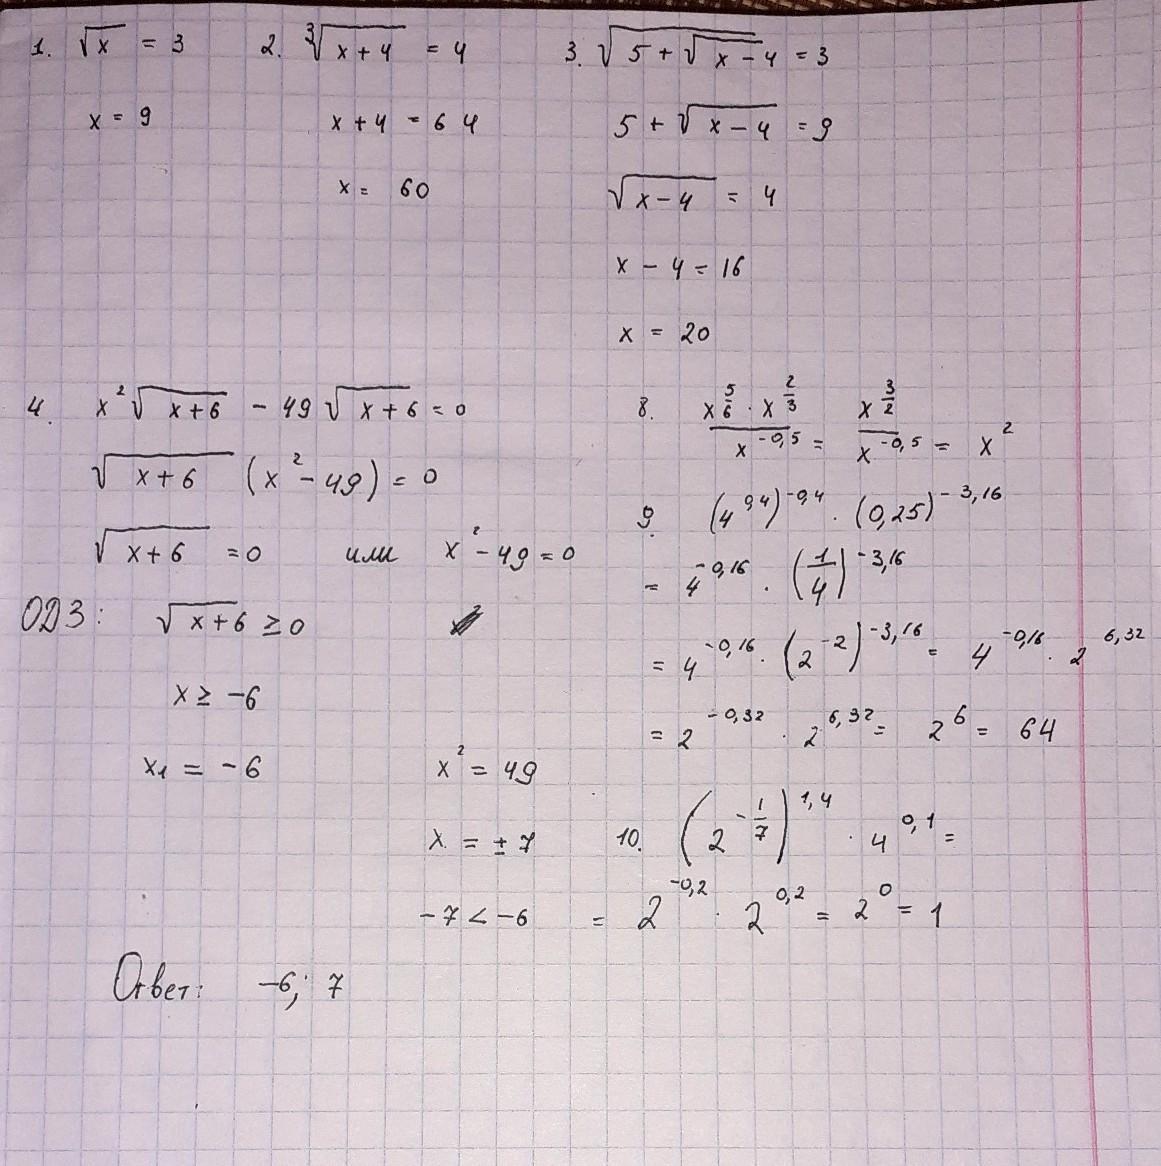 1. √x = 3
x = 9
2. ∛(x+4) = 4
x+4 = 64
x = 60
3. √(5+√(x-4)) = 3
5+√(x-4) = 9
√(x-4) = 4
x-4 = 16
x = 20
4. x²√(x+6) - 49√(x+6) = 0
√(x+6) (x²-49) = 0
√(x+6) = 0 или x²-49 = 0
ОДЗ: √(x+6) ≥ 0
x ≥ -6
x₁ = -6
x² = 49
x = ±7
-7 < -6
Ответ: -6; 7
8. (x^(5/6) · x^(2/3))/x^(-0,5) = x^(3/2)/x^(-0,5) = x²
9. (4^(0,4))^(-0,4) · (0,25)^(-3,16)
= 4^(-0,16) · (1/4)^(-3,16)
= 4^(-0,16) · (2^(-2))^(-3,16) = 4^(-0,16) · 2^(6,32)
= 2^(-0,32) · 2^(6,32) = 2^6 = 64
10. (2^(-1/7))^(1,4) · 4^(0,1) =
= 2^(-0,2) · 2^(0,2) = 2^0 = 1